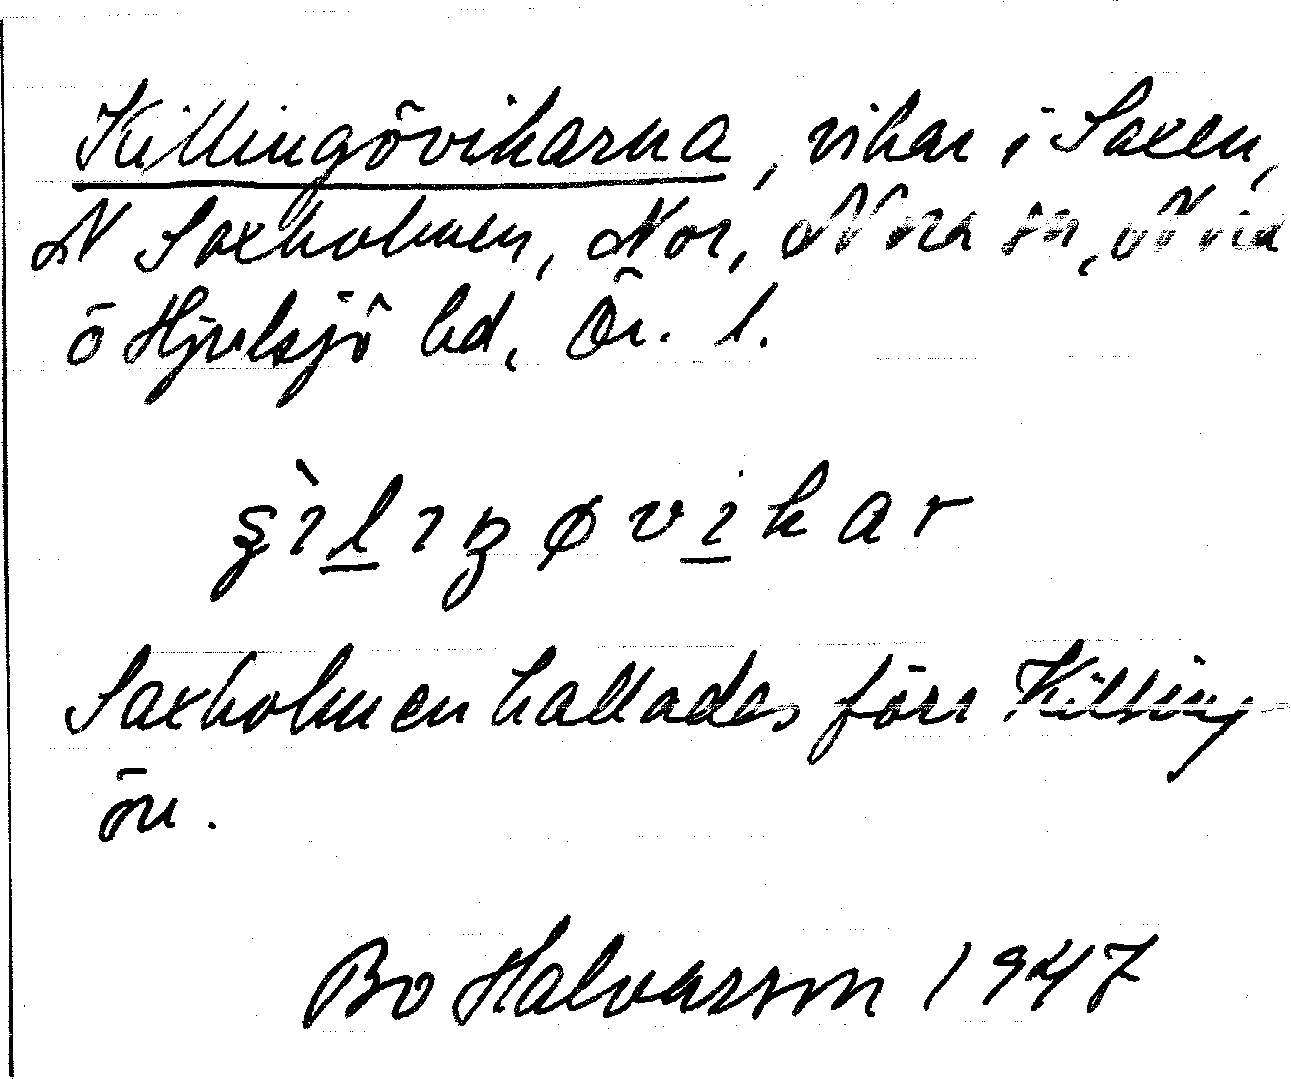 Killingövikarna, vikar i Saxen,
N Saxholmen, Nor, Nora sn, Nora
o Hjulsjö bd, Ör. l.
Saxholmen kallades förr Killing
ön.
Bo Halvarson 1947